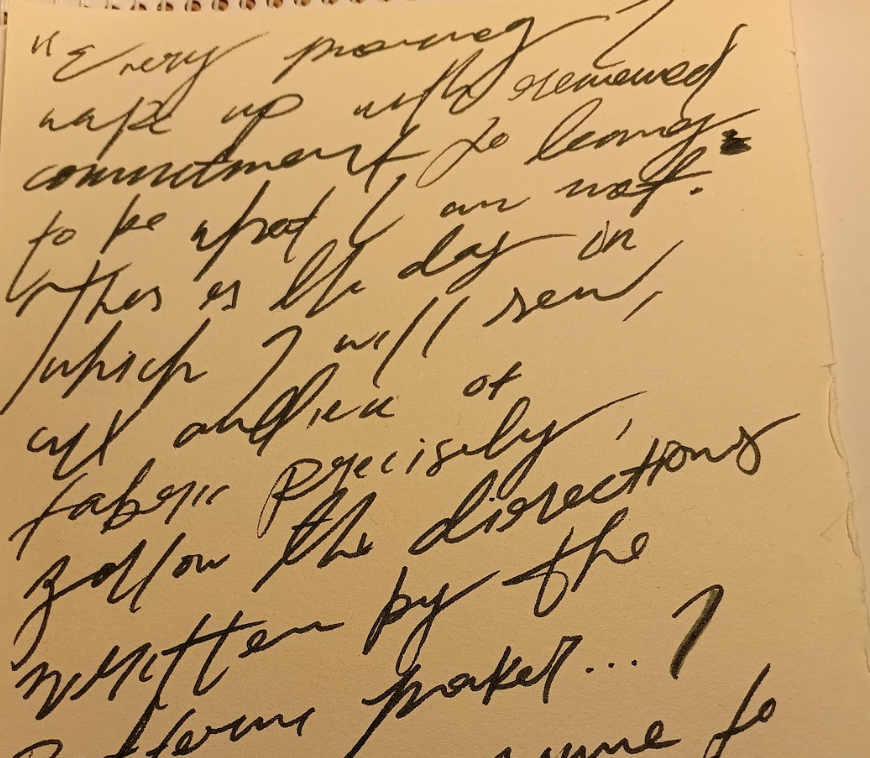 "Every morning I
wake up with renewed
commitment to being
to be what I am not.
This is the day in
which I will sew,
cut a piece of
fabric precisely,
follow the directions
written by the
Pattern maker... I
to